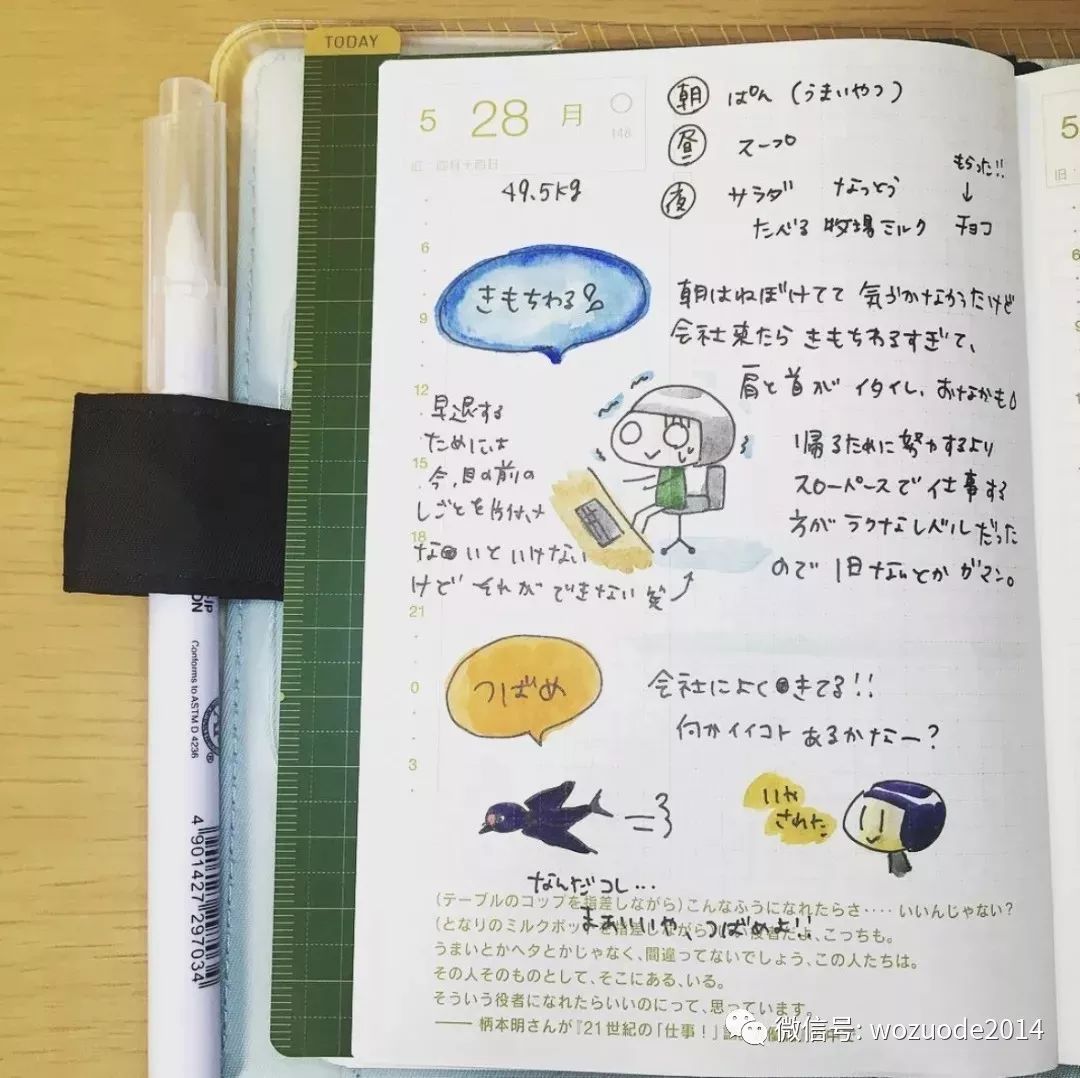 TODAY
5 28 月
148
旧・四月十四日
49.5kg
朝 ぱん (うまいやつ)
昼 スープ
夜 サラダ なっとう
もらった!!
↓
たべる 牧場ミルク チョコ
きもちわる
朝はねぼけてて 気づかなかったけど
会社来たら きもちわるすぎて、
肩と首が イタイし、おなかも
帰るために努力するより
スローペースで仕事する
方が ラクなレベルだった
ので 1日 ガマン。
早退する
ためには
今、目の前の
しごとを片付け
ないといけない
けど それが できない 笑
6
9
12
15
18
21
0
3
つばめ
会社によく きてる!!
何かイイコト あるかなー?
いや
された
なんだコレ…
まあいいや、つばめよ!!
(テーブルのコップを指差しながら)こんなふうになれたらさ‥‥いいんじゃない?
(となりのミルクポッ 役者だよ、こっちも。
うまいとかヘタとかじゃなく、間違ってないでしょう、この人たちは。
その人そのものとして、そこにある、いる。
そういう役者になれたらいいのにって、思っています。
── 柄本明さんが『21世紀の「仕事!」
JP
ON
Conforms to ASTM D 4236
4 901427 297034
5
旧・
6
微信号: wozuode2014